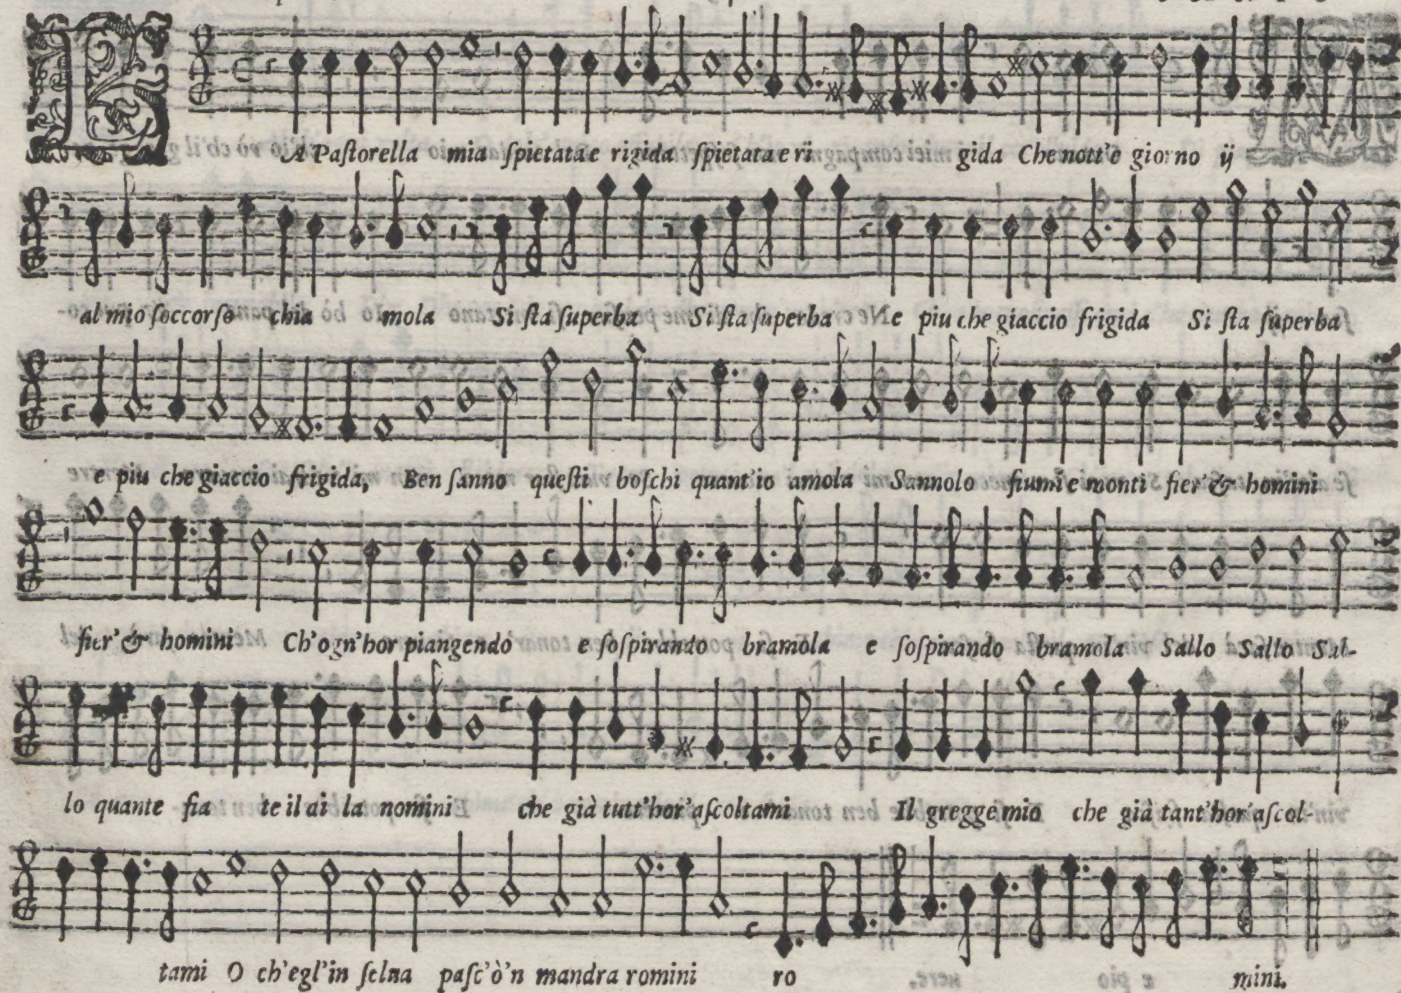 LA Paſtorella mia ſpietata e rigida ſpietata e ri gida Che nott'e giorno ij
al mio ſoccorſo chia mola Si ſta ſuperba Si ſta ſuperba e piu che giaccio frigida Si ſta ſuperba
e piu che giaccio frigida, Ben ſanno queſti boſchi quant'io amola Sannolo fiumi e monti fier' & homini
fier' & homini Ch'ogn'hor piangendo e ſoſpirando bramola e ſoſpirando bramola Sallo Sallo Sal-
lo quante fia te il dì la nomini che già tutt'hor'aſcoltami Il gregge mio che già tant'hor'aſcol-
tami O ch'egl'in ſelua paſc'ò'n mandra romini ro mini.